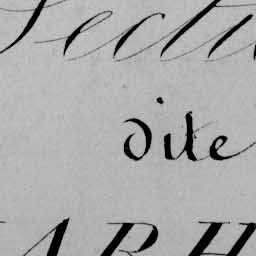 Secti
dite
ARH